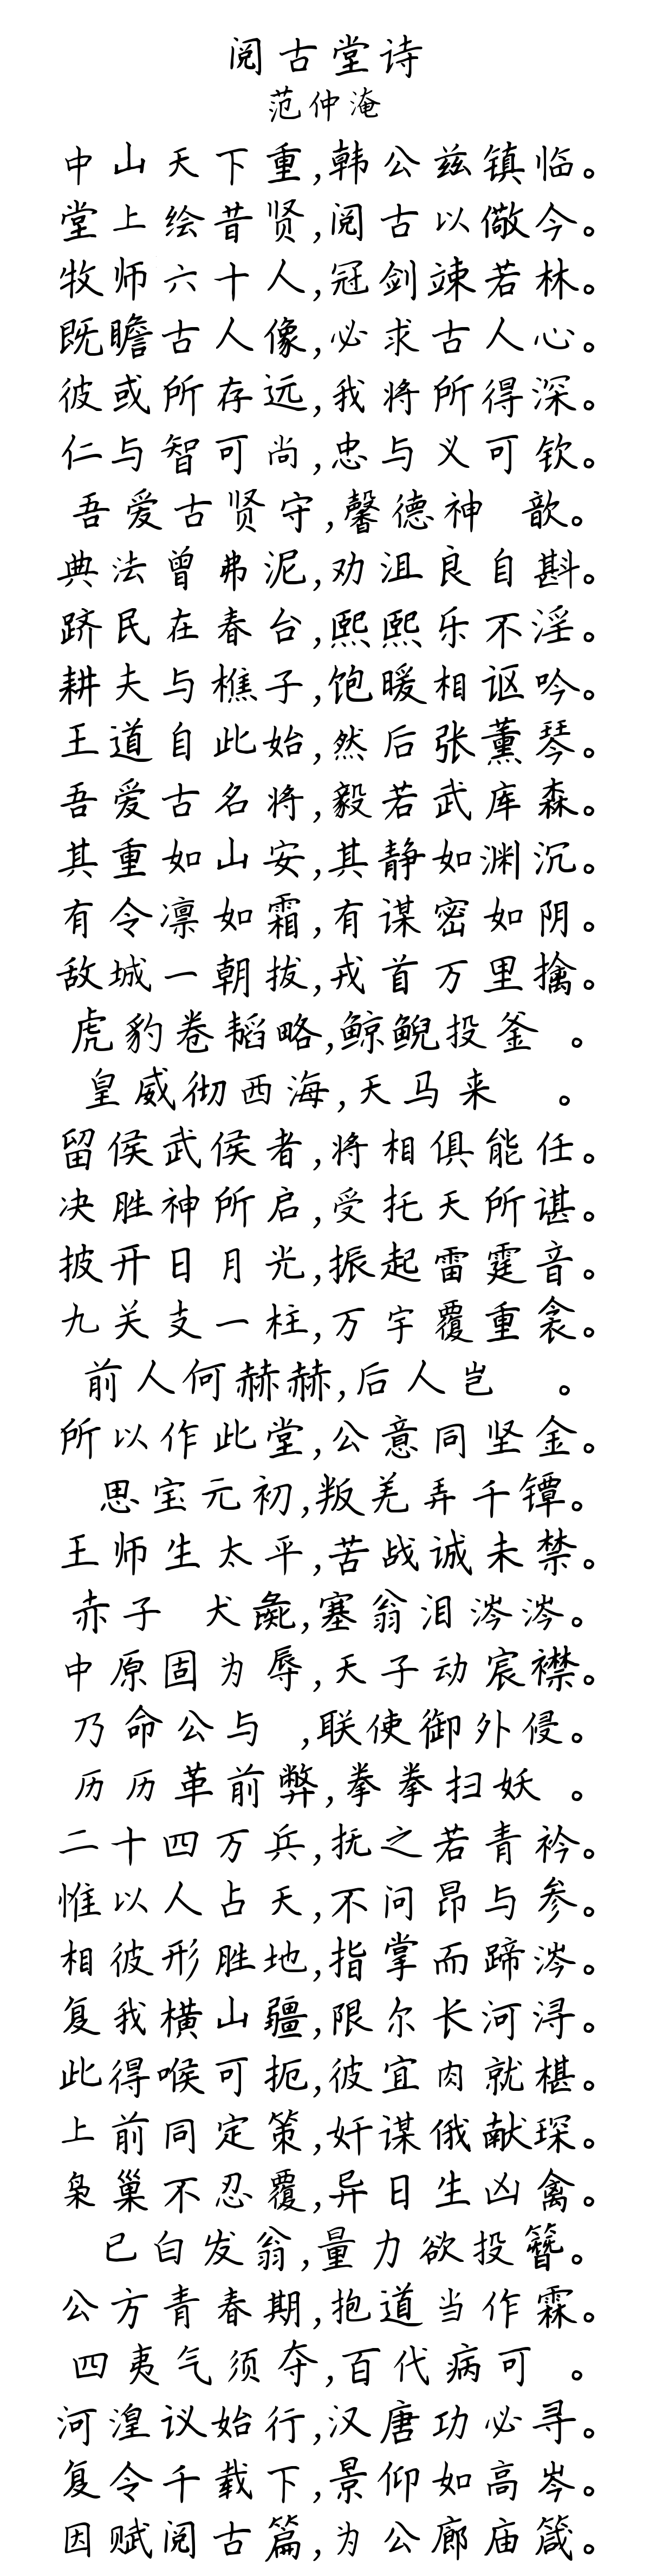 阅古堂诗
范仲淹
中山天下重,韩公兹镇临。
堂上绘昔贤,阅古以儆今。
牧师六十人,冠剑竦若林。
既瞻古人像,必求古人心。
彼或所存远,我将所得深。
仁与智可尚,忠与义可钦。
吾爱古贤守,馨德神 歆。
典法曾弗泥,劝沮良自斟。
跻民在春台,熙熙乐不淫。
耕夫与樵子,饱暖相讴吟。
王道自此始,然后张薰琴。
吾爱古名将,毅若武库森。
其重如山安,其静如渊沉。
有令凛如霜,有谋密如阴。
敌城一朝拔,戎首万里擒。
虎豹卷韬略,鲸鲵投釜 。
皇威彻西海,天马来 。
留侯武侯者,将相俱能任。
决胜神所启,受托天所谌。
披开日月光,振起雷霆音。
九关支一柱,万宇覆重衾。
前人何赫赫,后人岂 。
所以作此堂,公意同坚金。
思宝元初,叛羌弄千镡。
王师生太平,苦战诚未禁。
赤子 犬彘,塞翁泪涔涔。
中原固为辱,天子动宸襟。
乃命公与 ,联使御外侵。
历历革前弊,拳拳扫妖 。
二十四万兵,抚之若青衿。
惟以人占天,不问昂与参。
相彼形胜地,指掌而蹄涔。
复我横山疆,限尔长河浔。
此得喉可扼,彼宜肉就椹。
上前同定策,奸谋俄献琛。
枭巢不忍覆,异日生凶禽。
已白发翁,量力欲投簪。
公方青春期,抱道当作霖。
四夷气须夺,百代病可 。
河湟议始行,汉唐功必寻。
复令千载下,景仰如高岑。
因赋阅古篇,为公廊庙箴。